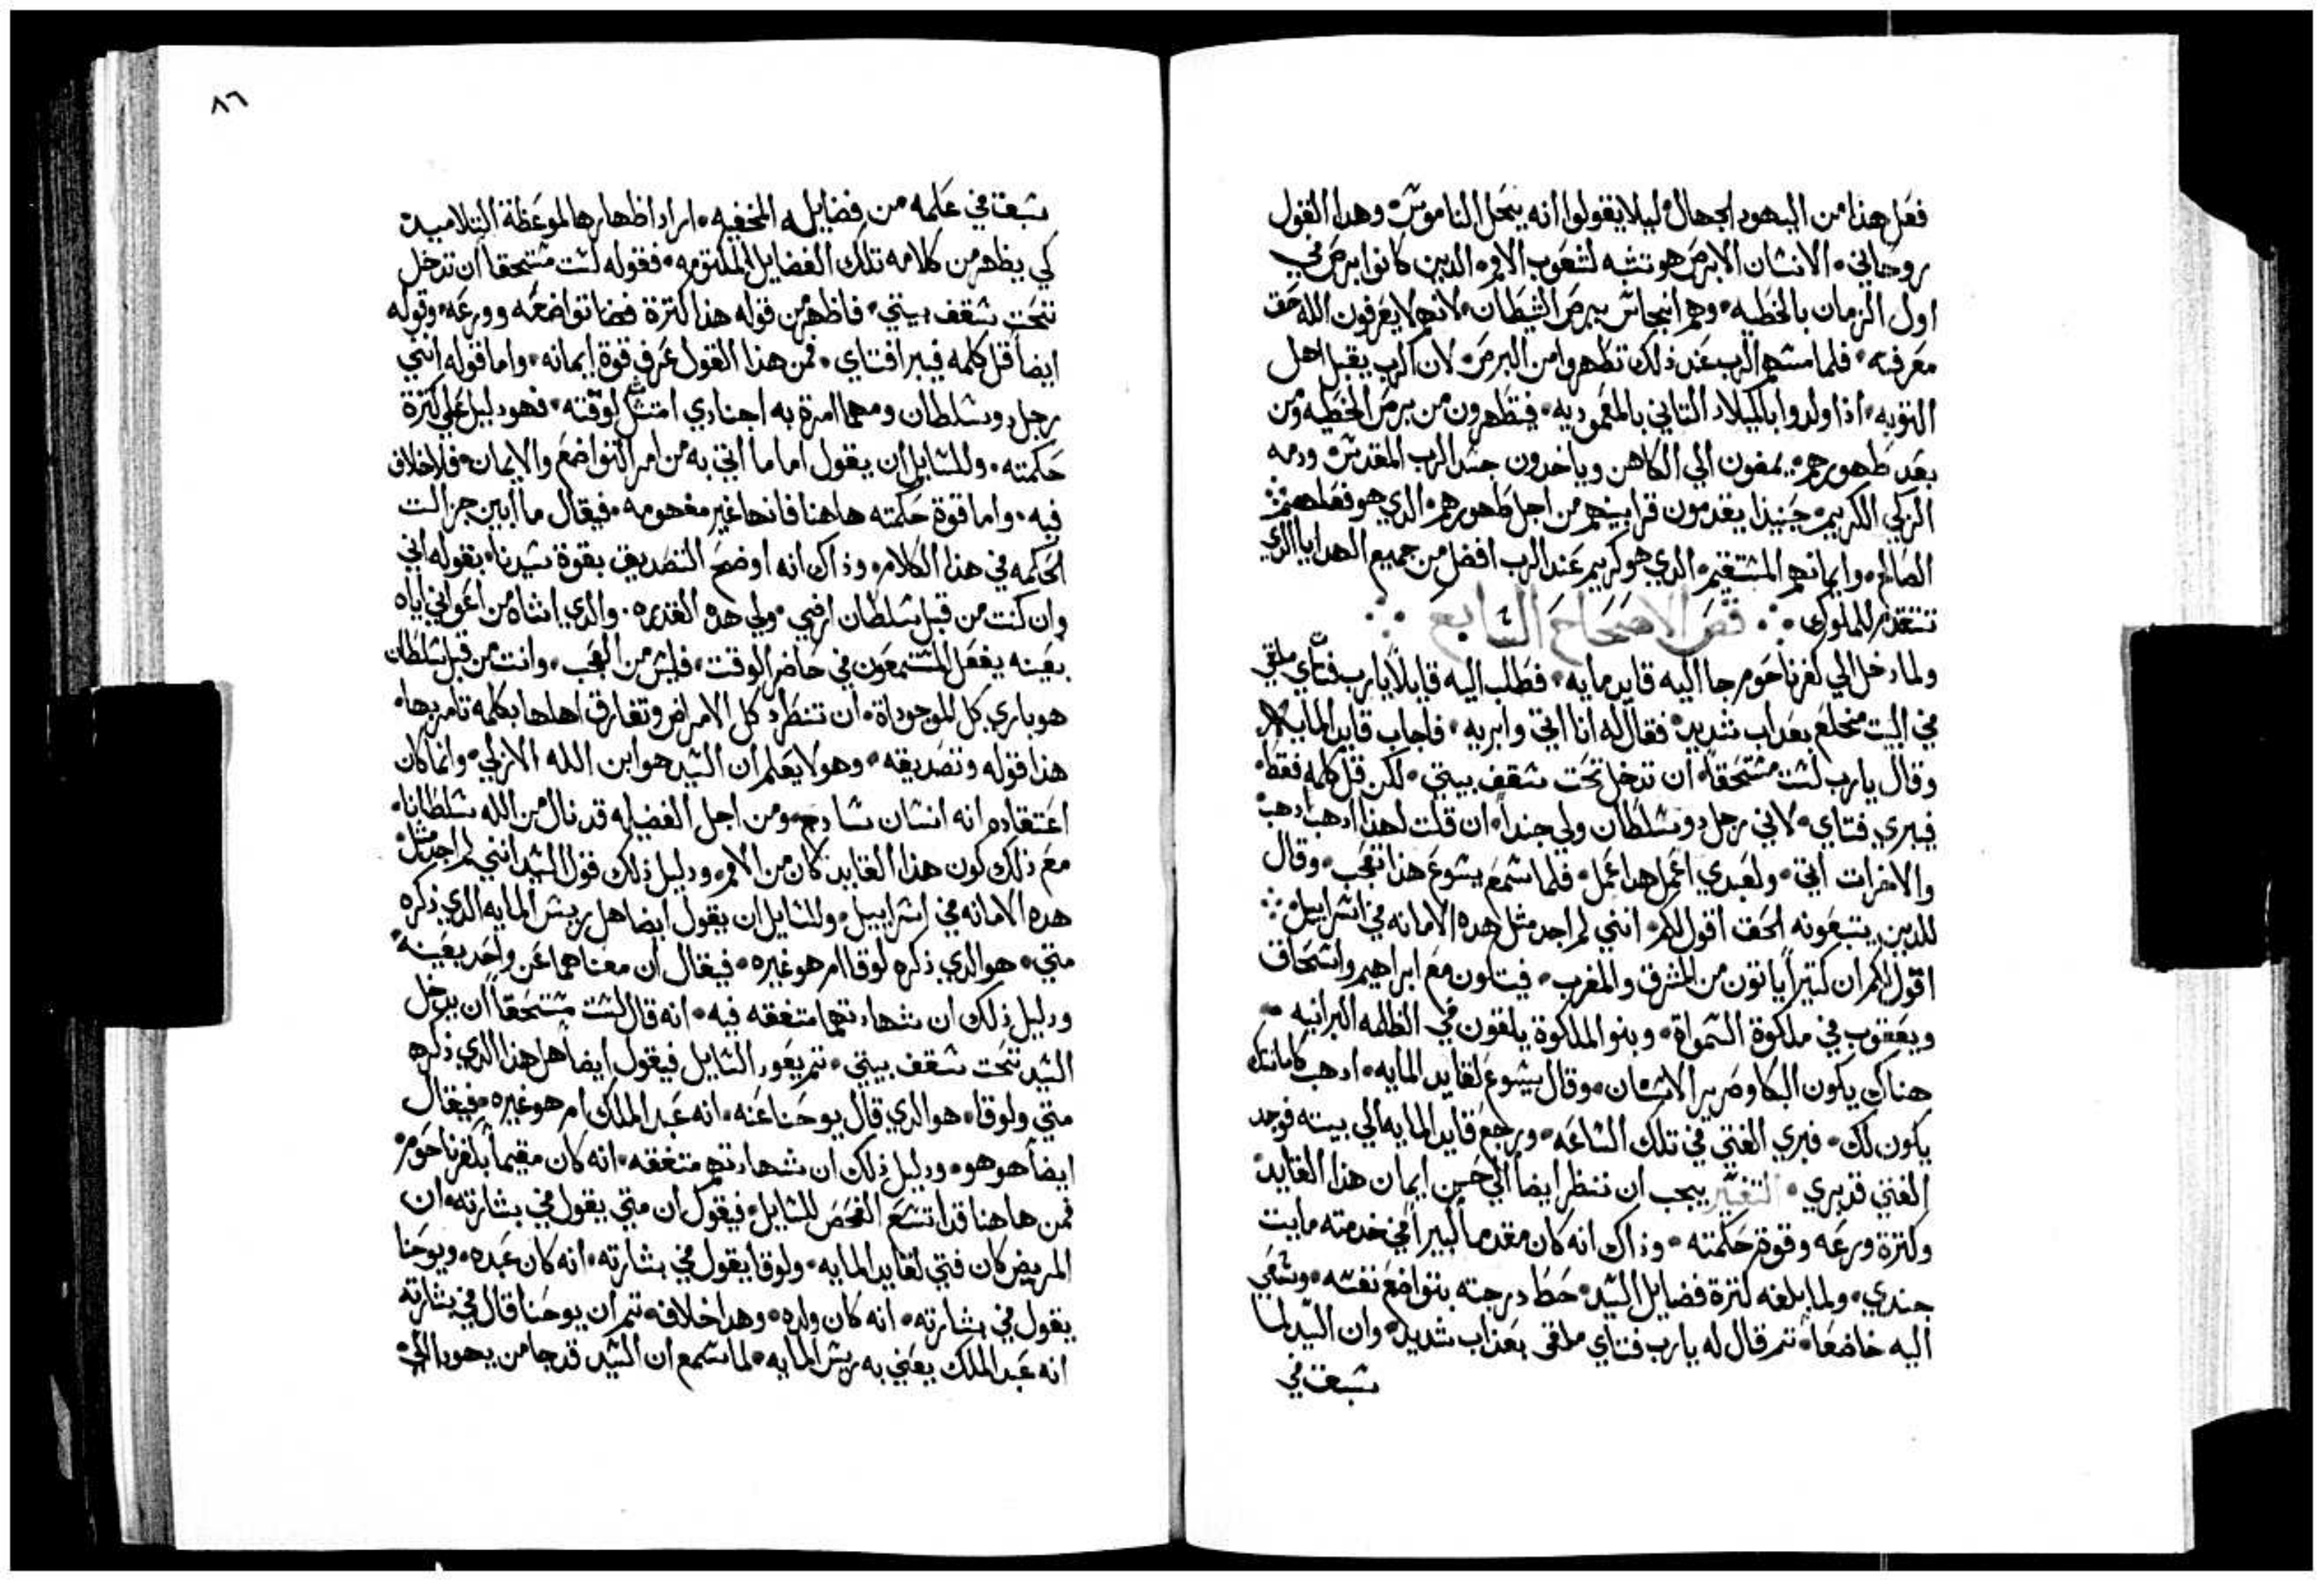 فعل هذا من اليهود الجهال ليلا يقولوا انه يحل الناموس وهدا القول
روحاني الانسان الابرص هو تشبه لشعوب الامم الدين كانوا برص في
اول الزمان بالخطيه وهم انجاس ببرص الشيطان لانهم لا يعرفون الله حق
معرفته فلما مسهم الرب عند ذلك تطهروا من البرص لان الرب يقبل اهل
التوبه اذا ولدوا بالميلاد التاني بالمعموديه فيتطهرون من برص الخطيه ومن
بعد طهورهم يمضون الي الكاهن وياخدون جسد الرب المقدس ودمه
الزكي الكريم حينيذا يقدمون قرابينهم من اجل طهورهم الدي هو فعلهم
الصالح وايمانهم المستقيم الدي هو كريم عند الرب افضل من جميع الهدايا الدي
تتقدم للملوك فص الاصحاح السابع
ولما دخل الي كفرناحوم جا اليه قايد مايه فطلب اليه قايلا يارب فتاي ملقي
في البيت مخلع بعداب شديد فقال له انا اتي وابريه فاجاب قايد المايه
وقال يارب لست مستحقا ان تدخل تحت سقف بيتي لكن قل كلمه فقط
فيبري فتاي لاني رجل دو سلطان ولي جندا ان قلت لهذا ادهب ادهب
والاخر ات اتي ولعبدي اعمل هدا عمل فلما سمع يسوع هذا تعجب وقال
للدين يتبعونه الحق اقول لكم انني لم اجد مثل هده الامانه في اسراييل
اقول لكم ان كتيرا ياتون من المشرق والمغرب فيتكون مع ابراهيم واسحاق
ويعقوب في ملكوة السمواة وبنو الملكوة يلقون في الظلمه البرانيه
هناك يكون البكا وصرير الاسنان وقال يسوع لقايد المايه ادهب كامانتك
يكون لك فبري الفتي في تلك الساعه ورجع قايد المايه الي بيته فوجد
الفتي قد بري التفسير يجب ان ننظر ايضا الي حسن ايمان هذا القايد
وكترة ورعه وقوة حكمته وذاك انه كان مقدما كبيرا في خدمته مايت
جندي ولما بلغه كترة فضايل السيد حط درجته بتواضع نفسه وسعي
اليه خاضعا تم قال له يارب فتاي ملقى بعذاب شديد وان السيد لما
سبق في
٨٦
سبق في علمه من فضايله المخفيه اراد اظهارها لموعظة التلاميد
كي يظهر من كلامه تلك الفضايل المكتومه فقوله لست مستحقا ان تدخل
تحت سقف بيتي فاظهر من قوله هذا كترة تواضعه وورعه وقوله
ايضا قل كلمه فيبرا فتاي فمن هذا القول عرف قوة ايمانه واما قوله انني
رجل دو سلطان ومهما امرة به اجنادي امتثل لوقته فهو دليل علي كترة
حكمته وللسايل ان يقول اما ما اتي به من امر التواضع والايمان فلا خلاف
فيه واما قوة حكمته هاهنا فانها غير مفهومه فيقال ما ابين جزالت
الحكمه في هذا الكلام وذاك انه اوضح التصديق بقوة سيدنا بقوله اني
وان كنت من قبل سلطان ارضي ولي هده القدره والدي اشاه من اعواني اياه
بعينه يفعل المستمعون في حاضر الوقت فليس من العجب وانت من قبل سلطان
هو باري كل الموجوداة ان تنطرد كل الامراض وتفارق اهلها بكلمه تامر بها
هذا قوله وتصديقه وهو لا يعلم ان السيد هو ابن الله الازلي وانما كان
اعتقاده انه انسان سادج ومن اجل الفضيله قد نال من الله سلطانا
مع ذلك كون هذا القايد كان من الامم ودليل ذلك قول السيد انني لم اجد مثل
هده الامانه في اسراييل وللسايل ان يقول ايضا هل ريس المايه الدي ذكره
متي هو الدي ذكره لوقا ام هو غيره فيقال ان معناهما عن واحد بعينه
ودليل ذلك ان شهادتهما متفقه فيه انه قال لست مستحقا ان يدخل
السيد تحت سقف بيتي تم يعود السايل فيقول ايضا هل هذا الدي ذكره
متي ولوقا هو الدي قال يوحنا عنه انه عبد الملك ام هو غيره فيقال
ايضا هو هو ودليل ذلك ان شهادتهم متفقه انه كان مقيما بكفرناحوم
فمن هاهنا قد اتسع الفحص للسايل فيقول ان متي يقول في بشارته ان
المريض كان فتي لقايد المايه ولوقا يقول في بشارته انه كان عبده ويوحنا
يقول في بشارته انه كان ولده وهدا خلاف تم ان يوحنا قال في بشارته
انه عبد الملك يعني به ريس المايه لما سمع ان السيد قد جا من يهودا الي